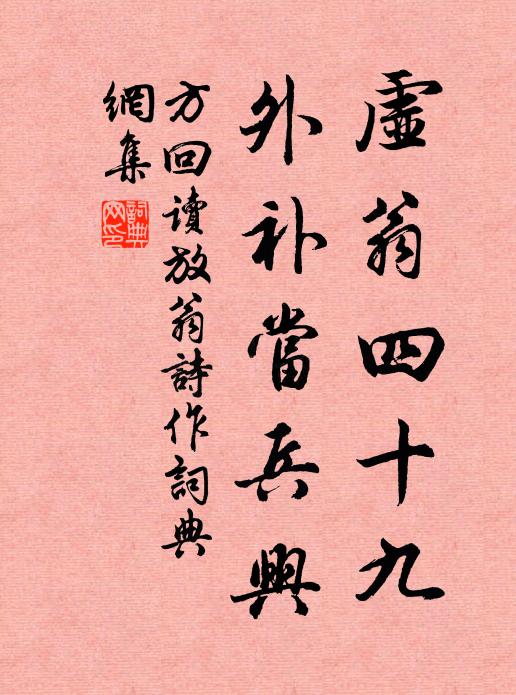 虛翁四十九
外补當兵興
方回讀放翁詩作詞典
網集
詞典
网㊞